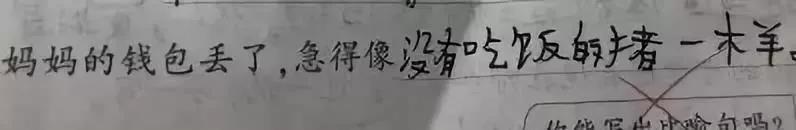 妈妈的钱包丢了,急得像没有吃饭的猪一样。
你能写出比喻句吗?